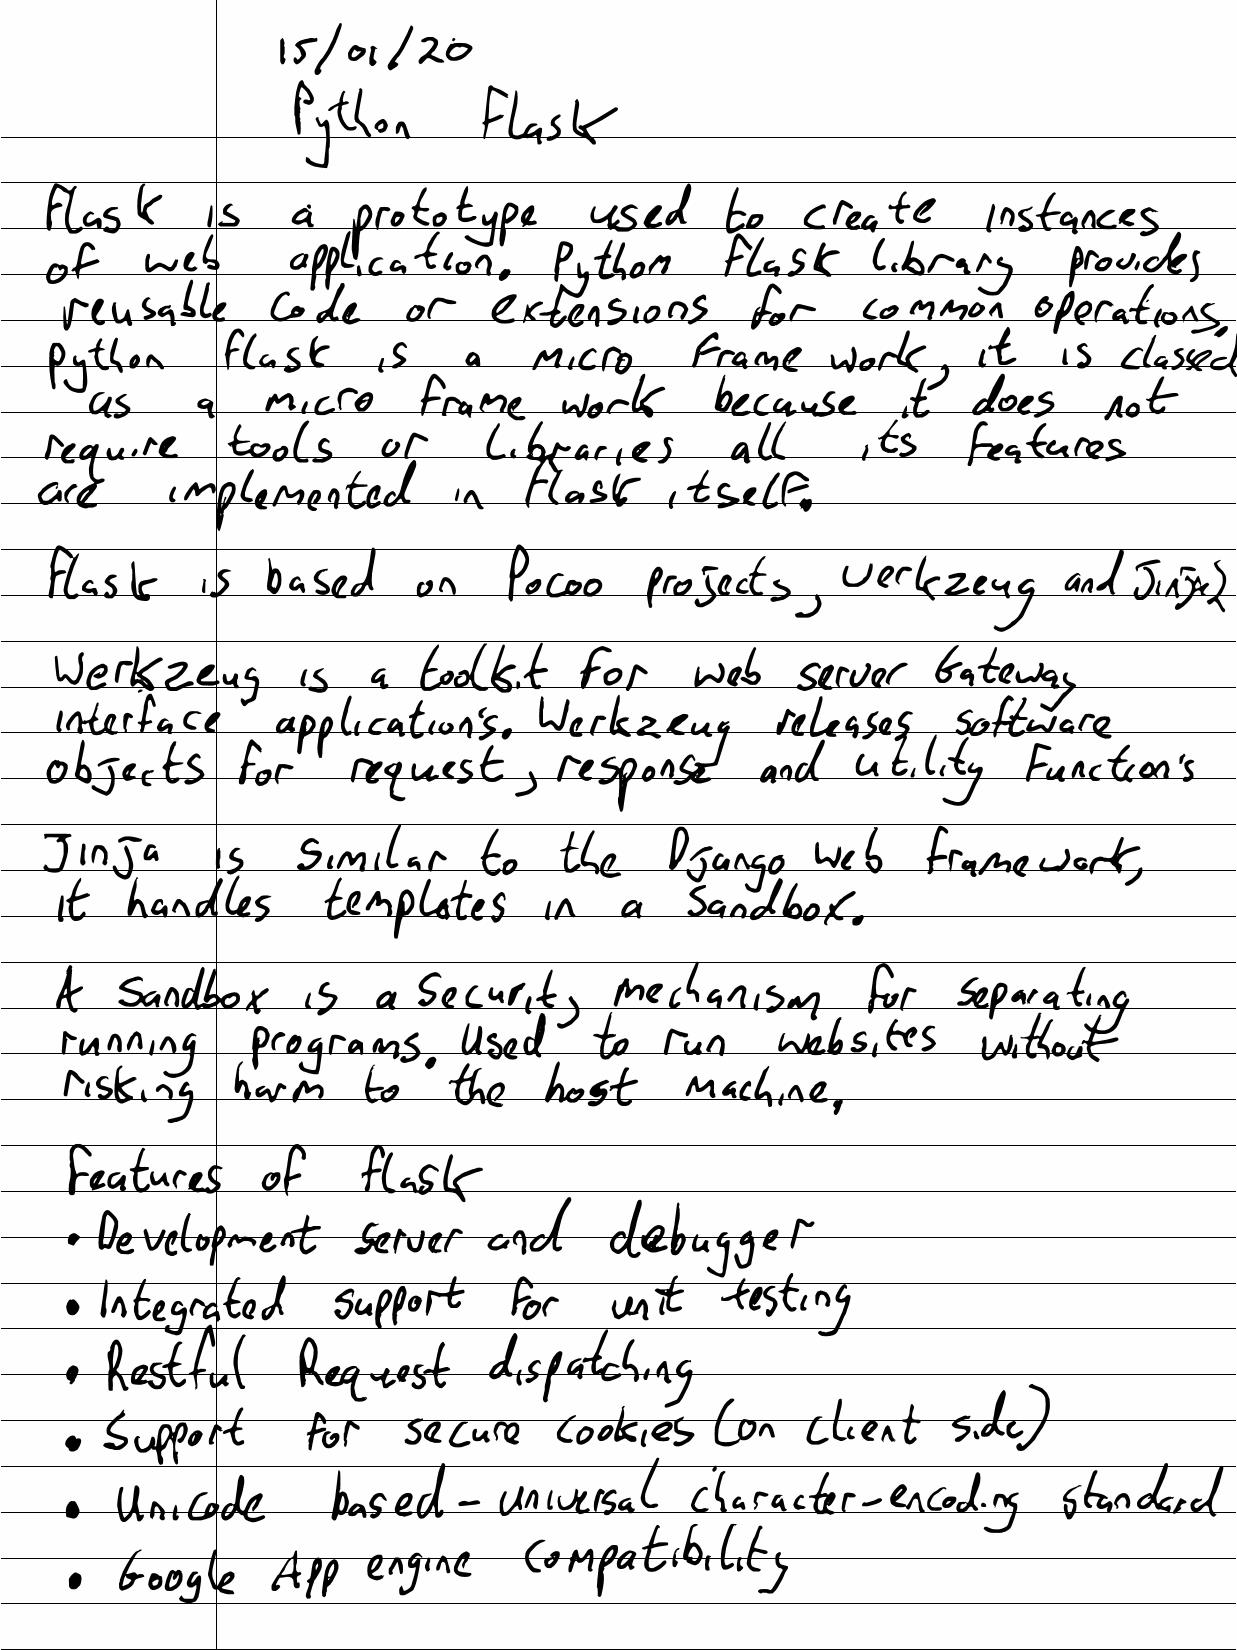 15/01/20
Python Flask
Flask is a prototype used to create instances
of web application. Python Flask library provides
reusable code or extensions for common operations.
Python flask is a micro frame work, it is classed
as a micro frame work because it does not
require tools or libraries all its features
are implemented in flask itself.
Flask is based on Pocoo projects, werkzeug and Jinja2
Werkzeug is a toolkit for web server Gateway
interface application's. Werkzeug releases software
objects for request, response and utility function's
Jinja is similar to the Django web framework,
it handles templates in a Sandbox.
A Sandbox is a security mechanism for separating
running programs. Used to run websites without
risking harm to the host machine.
Features of flask
• Development server and debugger
• Integrated support for unit testing
• Restful Request dispatching
• Support for secure cookies (on client side)
• Unicode based - universal character-encoding standard
• Google App engine compatibility